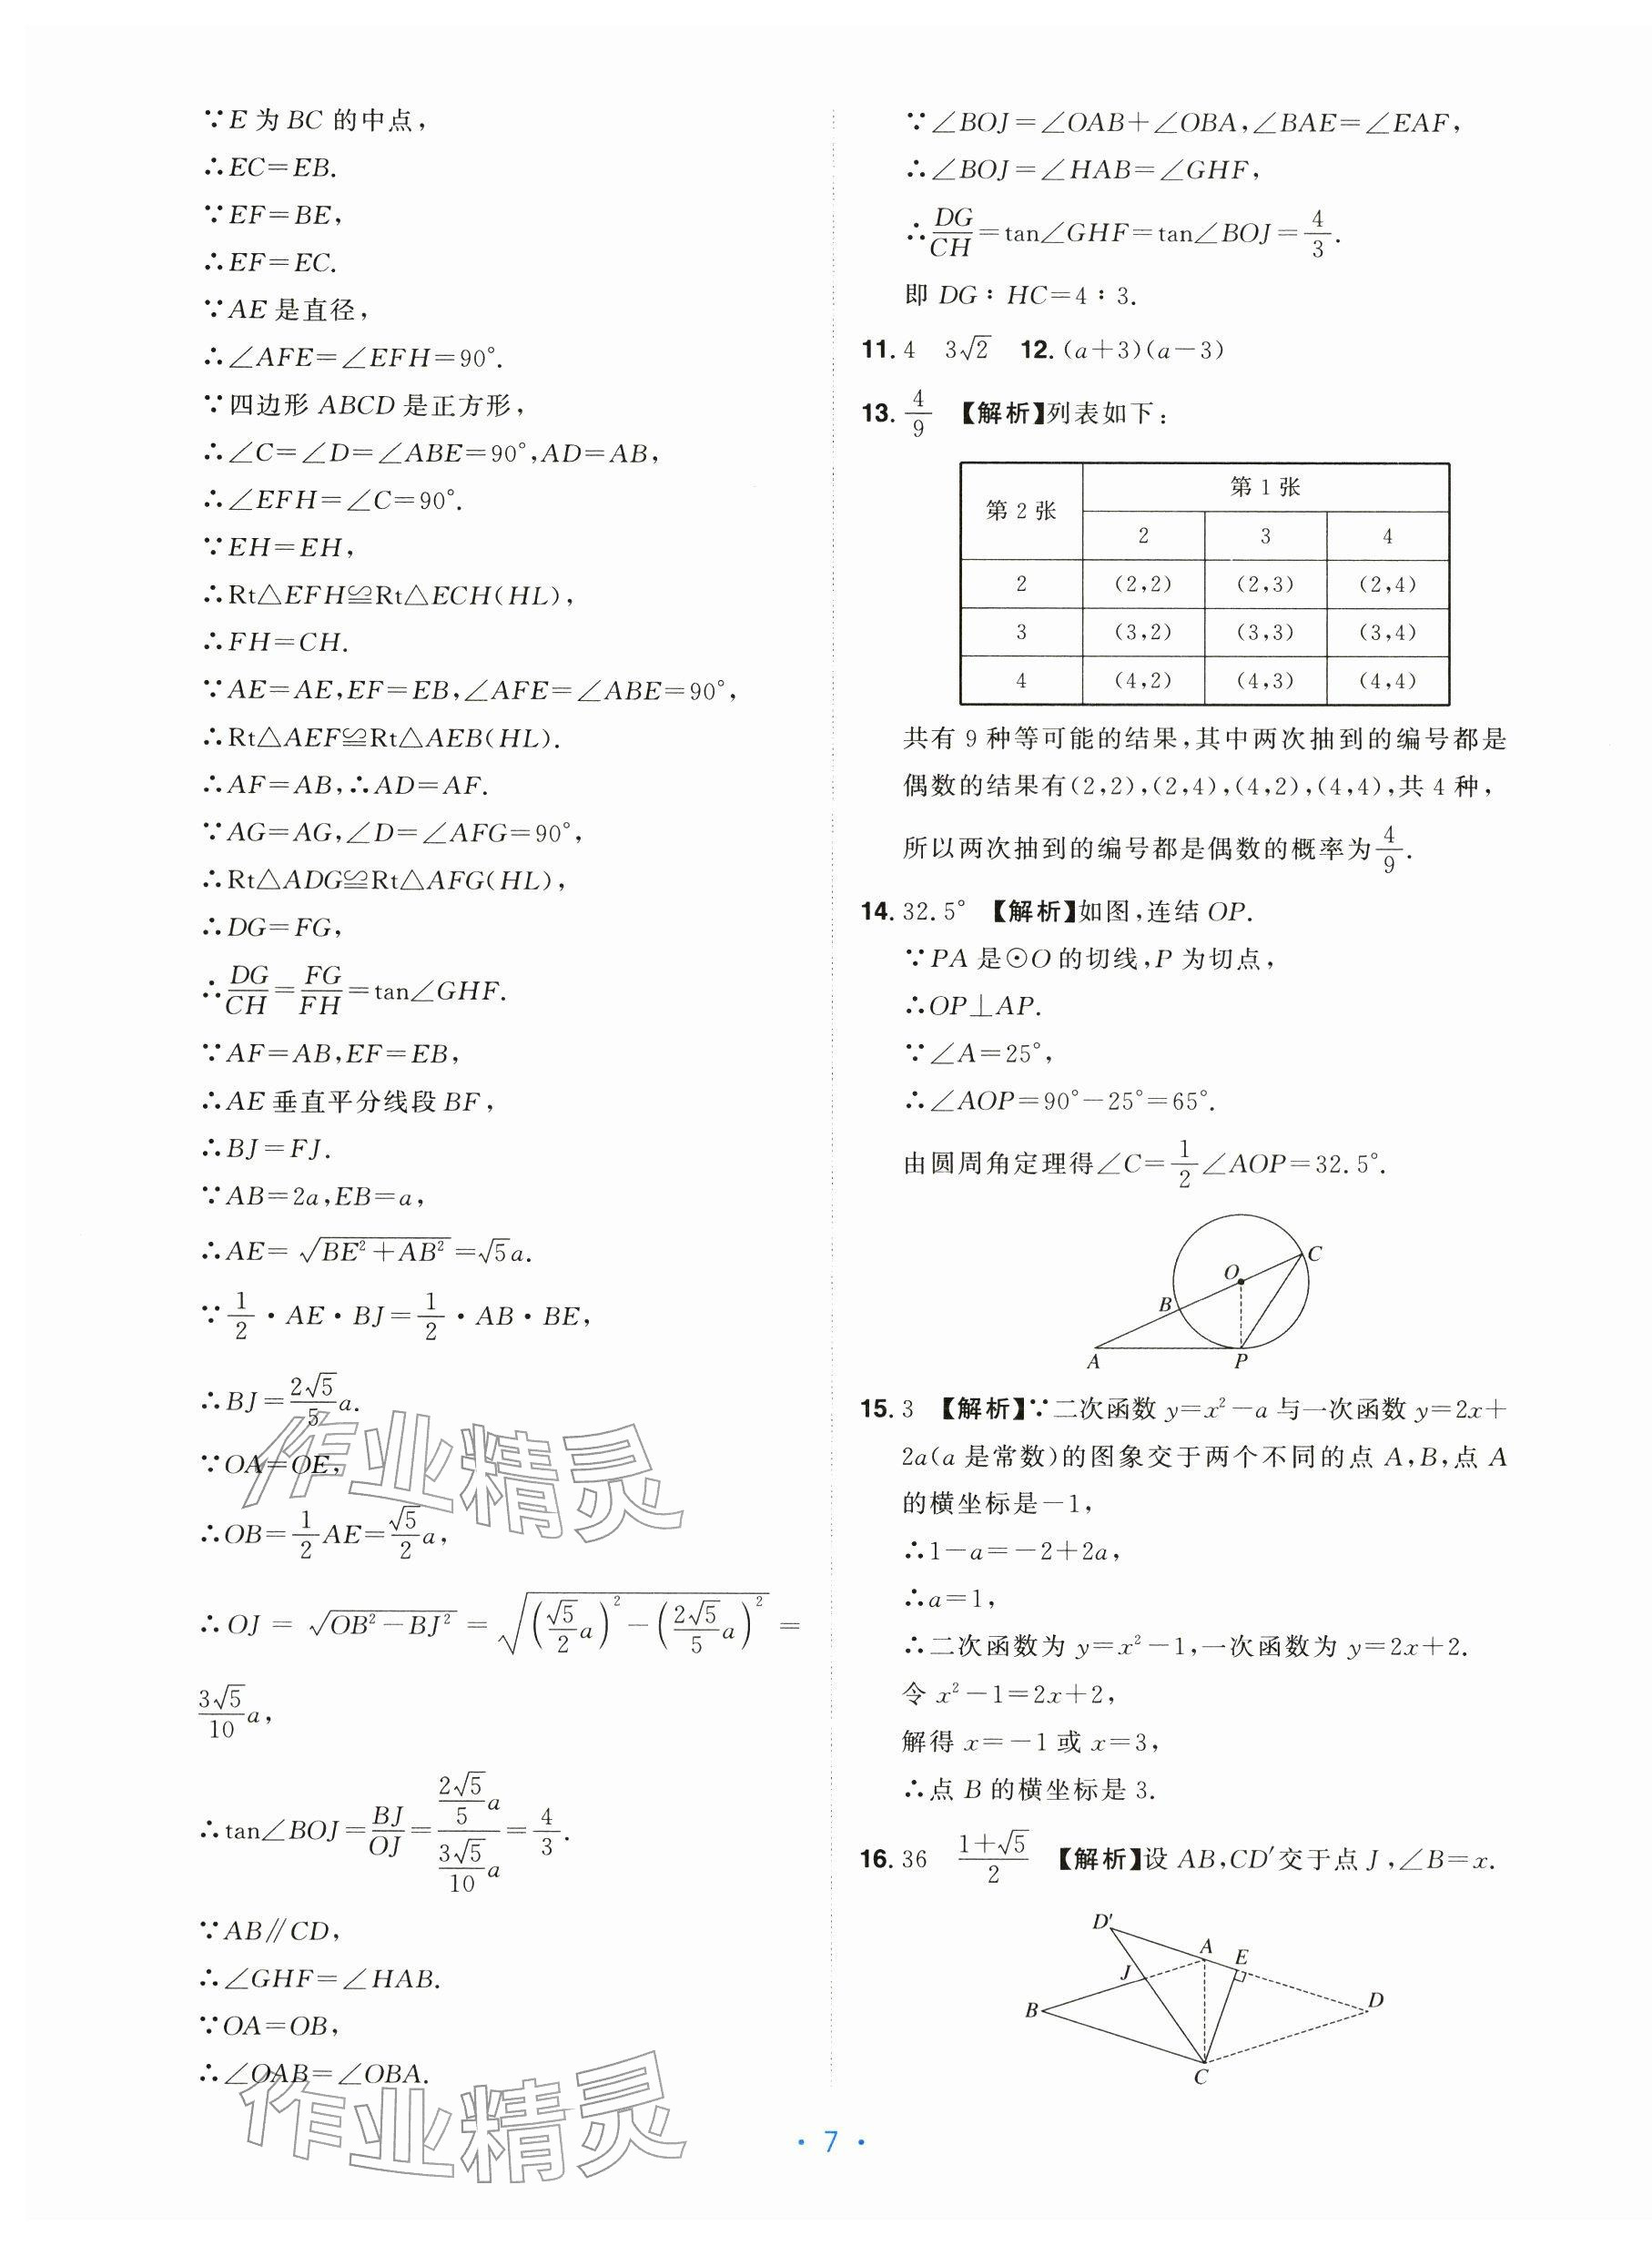 ∵E 为 BC 的中点，
∴EC=EB.
∵EF=BE，
∴EF=EC.
∵AE 是直径，
∴∠AFE=∠EFH=90°.
∵四边形 ABCD 是正方形，
∴∠C=∠D=∠ABE=90°,AD=AB，
∴∠EFH=∠C=90°.
∵EH=EH，
∴Rt△EFH≌Rt△ECH(HL)，
∴FH=CH.
∵AE=AE,EF=EB,∠AFE=∠ABE=90°，
∴Rt△AEF≌Rt△AEB(HL).
∴AF=AB,∴AD=AF.
∵AG=AG,∠D=∠AFG=90°，
∴Rt△ADG≌Rt△AFG(HL)，
∴DG=FG，
∴DG/CH=FG/FH=tan∠GHF.
∵AF=AB,EF=EB，
∴AE 垂直平分线段 BF，
∴BJ=FJ.
∵AB=2a,EB=a，
∴AE=√(BE²+AB²)=√5a.
∵1/2·AE·BJ=1/2·AB·BE，
∴BJ=2√5/5 a.
∵OA=OE，
∴OB=1/2 AE=√5/2 a，
∴OJ=√(OB²-BJ²)=√((√5/2 a)²-(2√5/5 a)²)=
3√5/10 a，
∴tan∠BOJ=BJ/OJ=(2√5/5 a)/(3√5/10 a)=4/3.
∵AB∥CD，
∴∠GHF=∠HAB.
∵OA=OB，
∴∠OAB=∠OBA.
∵∠BOJ=∠OAB+∠OBA,∠BAE=∠EAF，
∴∠BOJ=∠HAB=∠GHF，
∴DG/CH=tan∠GHF=tan∠BOJ=4/3.
即 DG∶HC=4∶3.
11. 4 3√2 12. (a+3)(a-3)
13. 4/9 【解析】列表如下：
第 2 张 第 1 张
2 3 4
2 (2,2) (2,3) (2,4)
3 (3,2) (3,3) (3,4)
4 (4,2) (4,3) (4,4)
共有 9 种等可能的结果,其中两次抽到的编号都是
偶数的结果有(2,2),(2,4),(4,2),(4,4),共 4 种，
所以两次抽到的编号都是偶数的概率为4/9.
14. 32.5° 【解析】如图,连结 OP.
∵PA 是⊙O 的切线,P 为切点，
∴OP⊥AP.
∵∠A=25°，
∴∠AOP=90°-25°=65°.
由圆周角定理得∠C=1/2∠AOP=32.5°.
C
O
B
A P
15. 3 【解析】∵二次函数 y=x²-a 与一次函数 y=2x+
2a(a 是常数)的图象交于两个不同的点 A,B,点 A
的横坐标是-1，
∴1-a=-2+2a，
∴a=1，
∴二次函数为 y=x²-1,一次函数为 y=2x+2.
令 x²-1=2x+2，
解得 x=-1 或 x=3，
∴点 B 的横坐标是 3.
16. 36 (1+√5)/2 【解析】设 AB,CD′交于点 J,∠B=x.
D′
A E
J
B D
C
作业精灵
作业精灵
· 7 ·